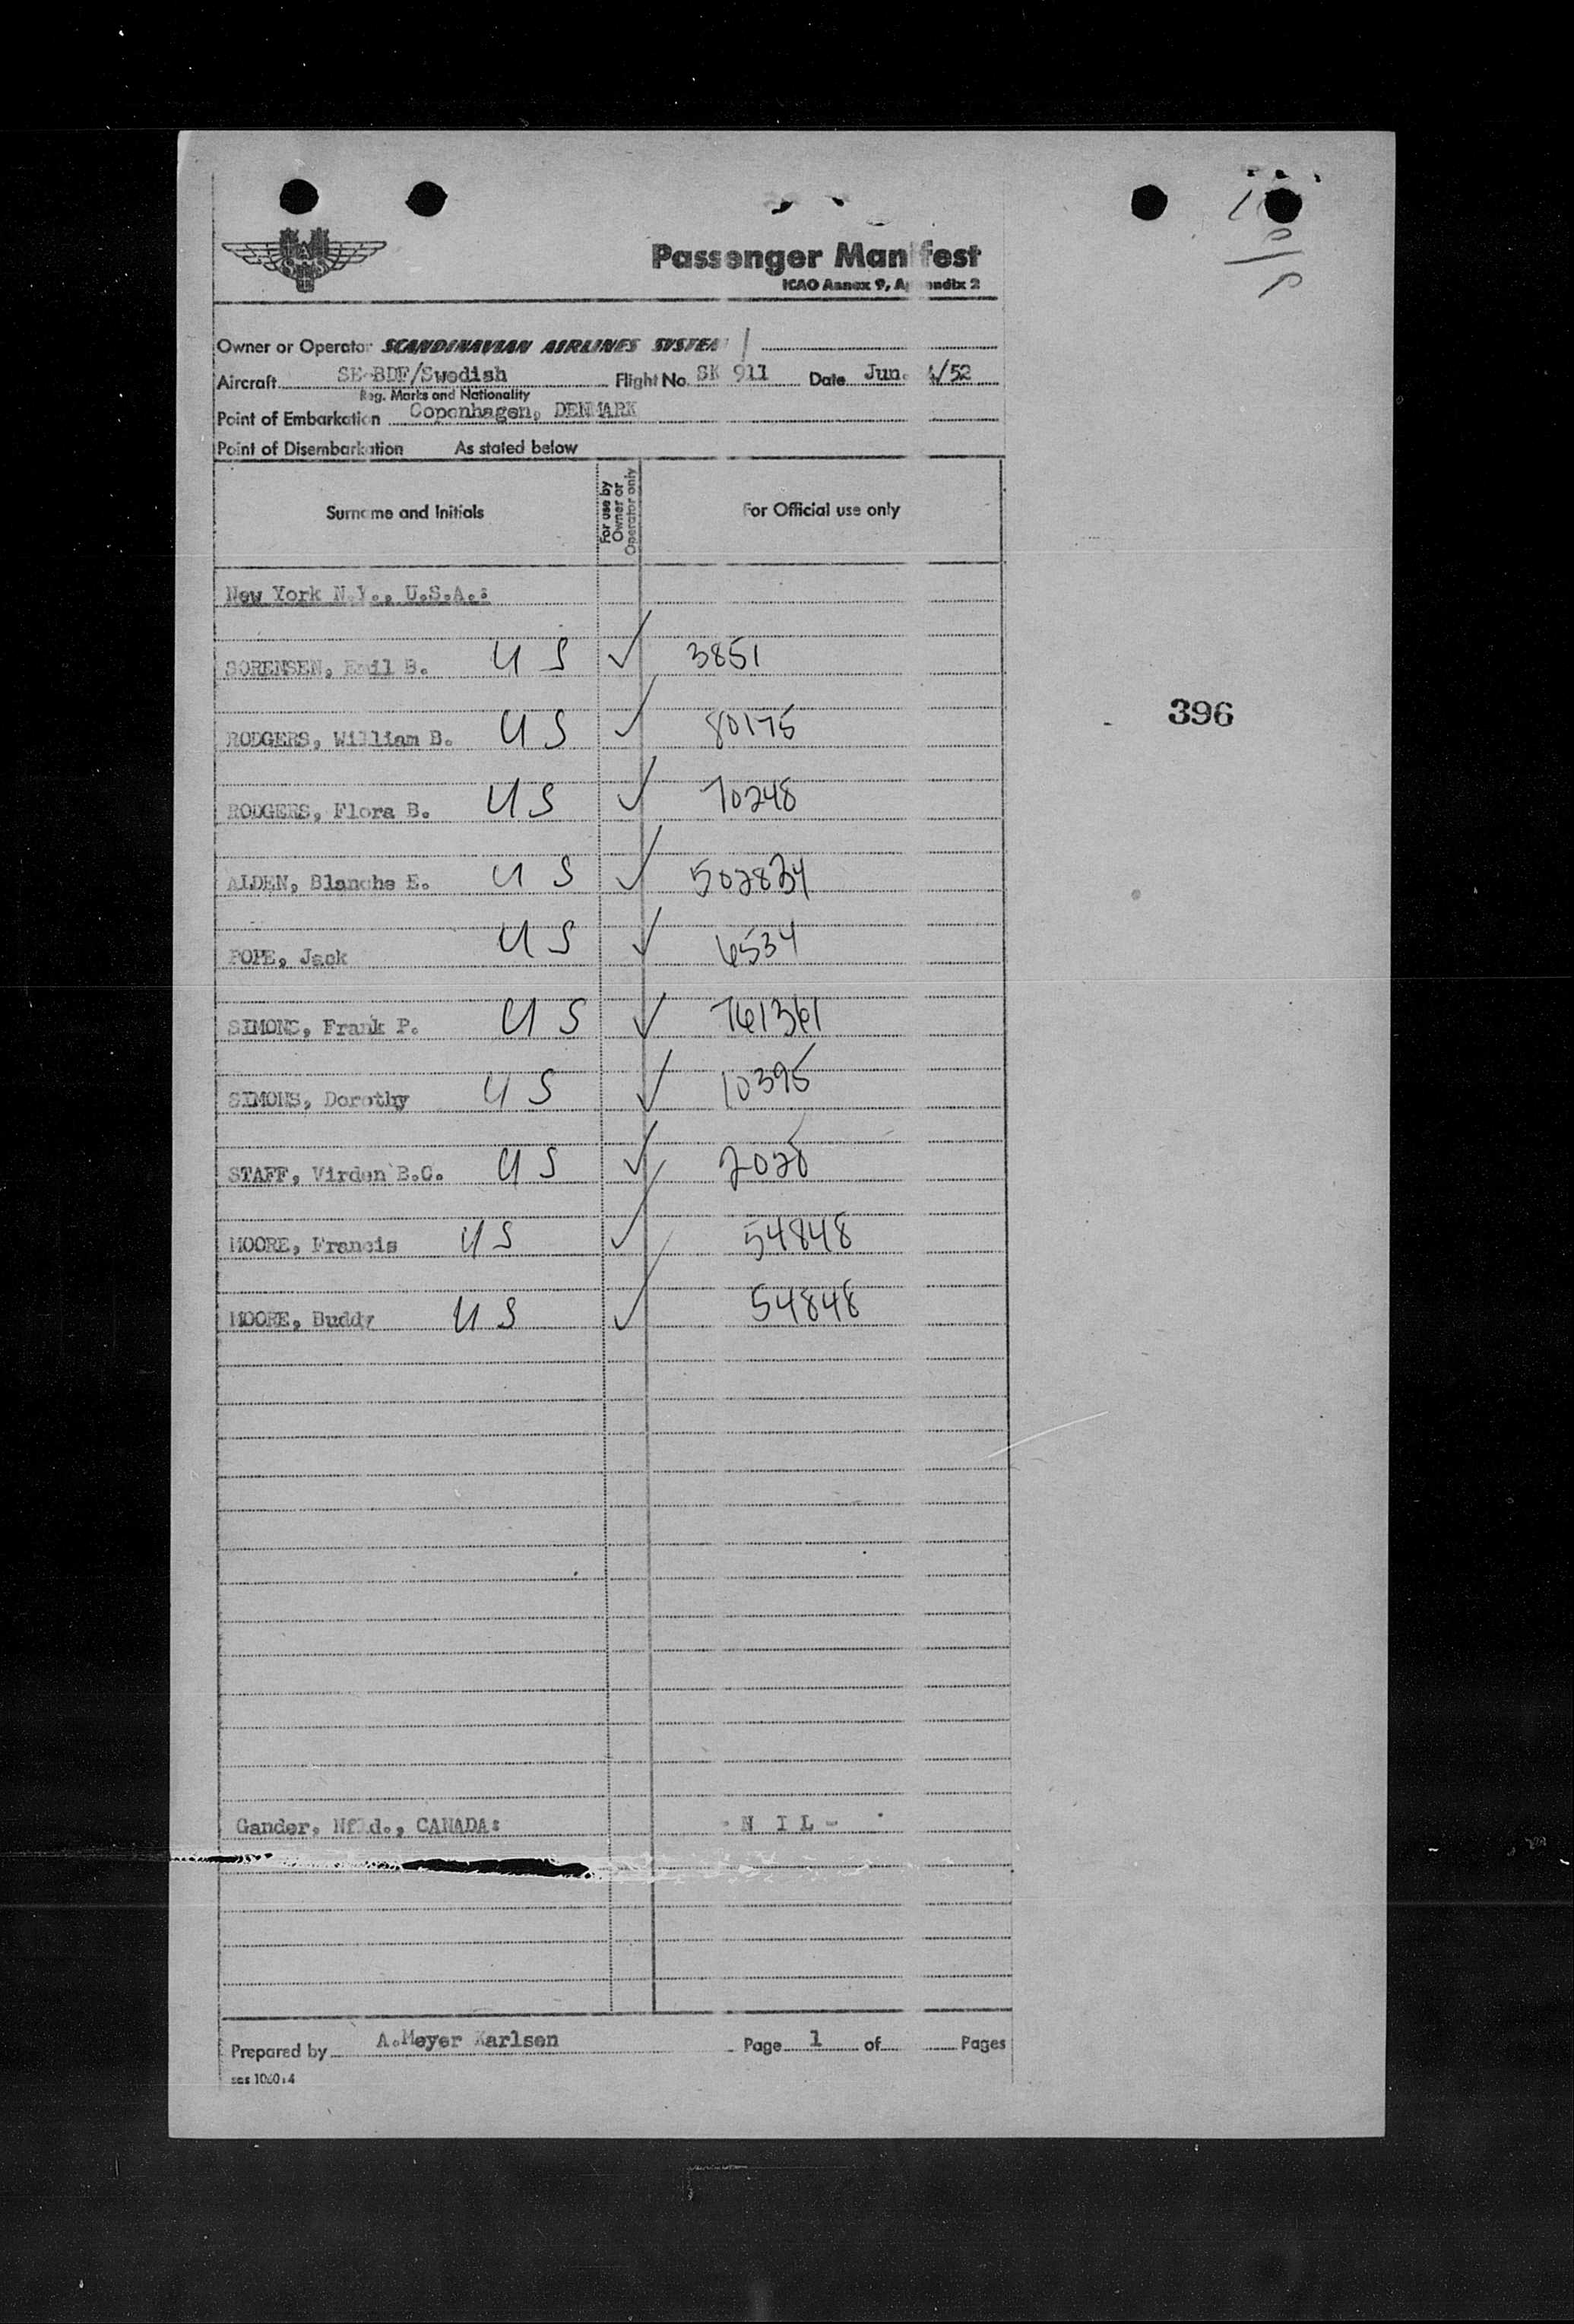 Passenger Manifest
ICAO Annex 9, Appendix 2
Owner or Operator SCANDINAVIAN AIRLINES SYSTEM
Aircraft SE-BDF/Swedish Flight No. SK 911 Date Jun. 4/52
Reg. Marks and Nationality
Point of Embarkation Copenhagen, DENMARK
Point of Disembarkation As stated below
Surname and Initials For use by Owner or Operator only For Official use only
New York N.Y., U.S.A.:
SORENSEN, Emil B. US ✓ 3851
396
RODGERS, William B. US ✓ 80175
RODGERS, Flora B. US ✓ 70248
ALDEN, Blanche E. US ✓ 502834
POPE, Jack US ✓ 6534
SIMONS, Frank P. US ✓ 761361
SIMONS, Dorothy US ✓ 10395
STAFF, Virden B.C. US ✓ 2028
MOORE, Francis US ✓ 54848
MOORE, Buddy US ✓ 54848
Gander, Nfld., CANADA: - N I L -
Prepared by A.Meyer Karlsen Page 1 of Pages
sas 1060:4